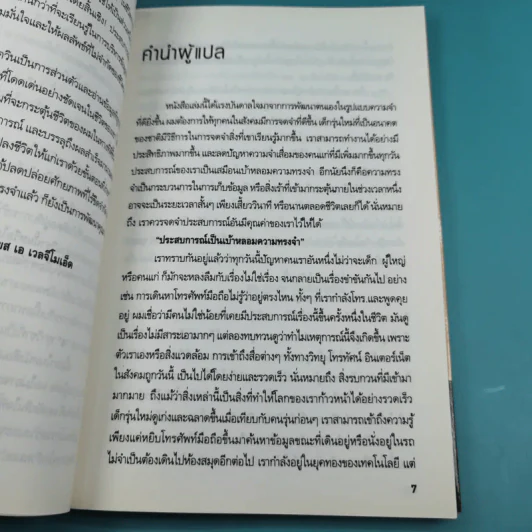 กว่าที่จะเรียนรู้ในการบริหาร
มมั่นใจและให้ผลลัพธ์ที่ไม่จำกัด
ควินเป็นการส่วนตัวและอ่าน
ที่โดดเด่นอย่างชัดเจนในชีวิต
มที่จะกระตุ้นชีวิตของผม
การณ์ และบรรลุถึงผลสำเร็จ
ลงชีวิตให้แก่เราด้วยขั้นตอน
ปลดปล่อยศักยภาพที่
จำแล้ว ก็ยังเป็นการพัฒนา
ยส เอ เวลจีโมเอ็ด
คำนำผู้แปล
หนังสือเล่มนี้ได้แรงบันดาลใจมาจากการพัฒนาตนเองในรูปแบบความจำ
ที่ดียิ่งขึ้น ผมต้องการให้ทุกคนในสังคมมีการจดจำที่ดีขึ้น เด็กรุ่นใหม่ที่เป็นอนาคต
ของชาติมีวิธีการในการจดจำสิ่งที่เขาเรียนรู้มากขึ้น เราสามารถทำงานได้อย่างมี
ประสิทธิภาพมากขึ้น และลดปัญหาความจำเสื่อมของคนแก่ที่มีเพิ่มมากขึ้นทุกวัน
ประสบการณ์ของเราเป็นเสมือนเบ้าหลอมความทรงจำ อีกนัยนึงก็คือความทรง
จำเป็นกระบวนการในการเก็บข้อมูล หรือสิ่งเร้าที่เข้ามากระตุ้นภายในช่วงเวลาหนึ่ง
อาจจะเป็นระยะเวลาสั้นๆ เพียงเสี้ยววินาที หรือนานตลอดชีวิตเลยก็ได้ นั่นหมาย
ถึง เราควรจดจำประสบการณ์อันมีคุณค่าของเราไว้ให้ได้
"ประสบการณ์เป็นเบ้าหลอมความทรงจำ"
เราทราบกันอยู่แล้วว่าทุกวันนี้ปัญหาคนเราอันหนึ่งไม่ว่าจะเด็ก ผู้ใหญ่
หรือคนแก่ ก็มักจะหลงลืมกับเรื่องไม่ใช่เรื่อง จนกลายเป็นเรื่องขำขันกันไป อย่าง
เช่น การเดินหาโทรศัพท์มือถือไม่รู้ว่าอยู่ตรงไหน ทั้งๆ ที่เรากำลังโทร และพูดคุย
อยู่ ผมเชื่อว่ามีคนไม่น้อยที่เคยมีประสบการณ์เรื่องนี้ขึ้นครั้งหนึ่งในชีวิต มันดู
เป็นเรื่องไม่มีสาระเอามากๆ แต่ลองทบทวนดูว่าทำไมเหตุการณ์นี้จึงเกิดขึ้น เพราะ
ตัวเราเองหรือสิ่งแวดล้อม การเข้าถึงสื่อต่างๆ ทั้งทางวิทยุ โทรทัศน์ อินเตอร์เน็ต
ในสังคมถูกวันนี้ เป็นไปได้โดยง่ายและรวดเร็ว นั่นหมายถึง สิ่งรบกวนที่มีเข้ามา
มากมาย ถึงแม้ว่าสิ่งเหล่านี้เป็นสิ่งที่ทำให้โลกของเราก้าวหน้าได้อย่างรวดเร็ว
เด็กรุ่นใหม่ดูเก่งและฉลาดขึ้นเมื่อเทียบกับคนรุ่นก่อนๆ เราสามารถเข้าถึงความรู้
เพียงแค่หยิบโทรศัพท์มือถือขึ้นมาค้นหาข้อมูลขณะที่เดินอยู่หรือนั่งอยู่ในรถ
ไม่จำเป็นต้องเดินไปห้องสมุดอีกต่อไป เรากำลังอยู่ในยุคทองของเทคโนโลยี แต่
7